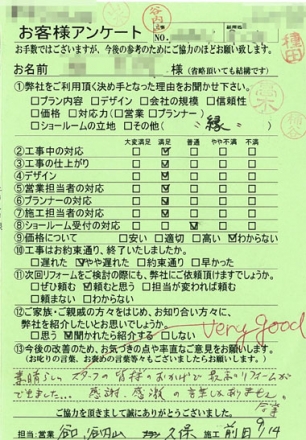 お客様アンケート
NO.
お手数ではございますが、今後の参考のためにご協力のほどお願い致します。
お名前 様 (省略頂いても結構です)
①弊社をご利用頂く決め手となった理由をお聞かせ下さい。
□プラン内容 □デザイン □会社の規模 □信頼性
□価格 □対応力(□営業 □プランナー)
□ショールームの立地 □その他( “縁” )
大変満足 満足 普通 やや不満 不満
②工事中の対応 □ ☑ □ □ □
③工事の仕上がり □ ☑ □ □ □
④デザイン □ ☑ □ □ □
⑤営業担当者の対応 □ ☑ □ □ □
⑥プランナーの対応 □ ☑ □ □ □
⑦施工担当者の対応 □ ☑ □ □ □
⑧ショールーム受付の対応 □ □ ☑ □ □
⑨価格について □安い □適切 □高い ☑わからない
⑩工事はお約束通り、終了いたしましたか。
□遅れた ☑やや遅れた □約束通り □早かった
⑪次回リフォームをご検討の際にも、弊社にご依頼頂けますでしょうか。
□ぜひ頼む ☑頼むと思う □担当が変われば頼む
□頼まない □わからない
⑫ご家族・ご親戚の方々をはじめ、お知り合い方々に、
弊社を紹介したいとお思いでしょうか。
□思う ☑聞かれたら紹介する □しない
very good
⑬今後の改善のため、お気づきの点や率直なご意見をお願いします。
(お叱りの言葉、お褒めの言葉等々もございましたらお願いします。)
素晴らしいスタッフの皆様のおかげで最高のリフォームが
できました... 感謝、感激の言葉しかありません。
ご協力を頂きまして誠にありがとうございました。
担当:営業 施工 前田 9/14